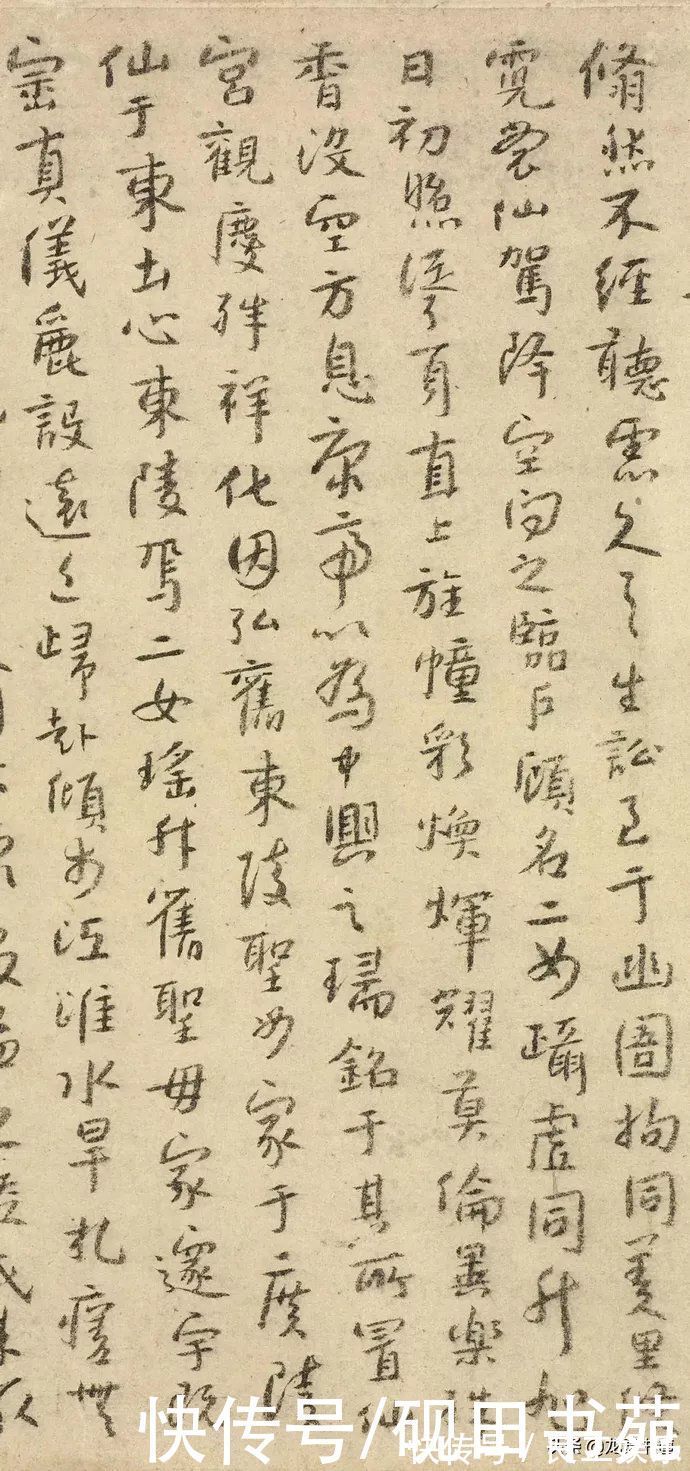 翛然不經聽慮久之生訟至于幽圄拘同羑里倏
霓裳仙駕降空向之臨戶顧名二女躡虛同升旭
日初照聳身直上旌幢彩煥輝耀莫倫異樂殊
香沒空方息康帝以為中興之瑞銘于其所置仙
宮觀慶殊祥化因弘舊東陵聖女家于廣陵
仙于東土心東陵焉二女瑤升舊聖毋家邃宇既
崇真儀麗設遠近歸赴傾幣江淮水旱札瘥無
快传号/砚田书苑